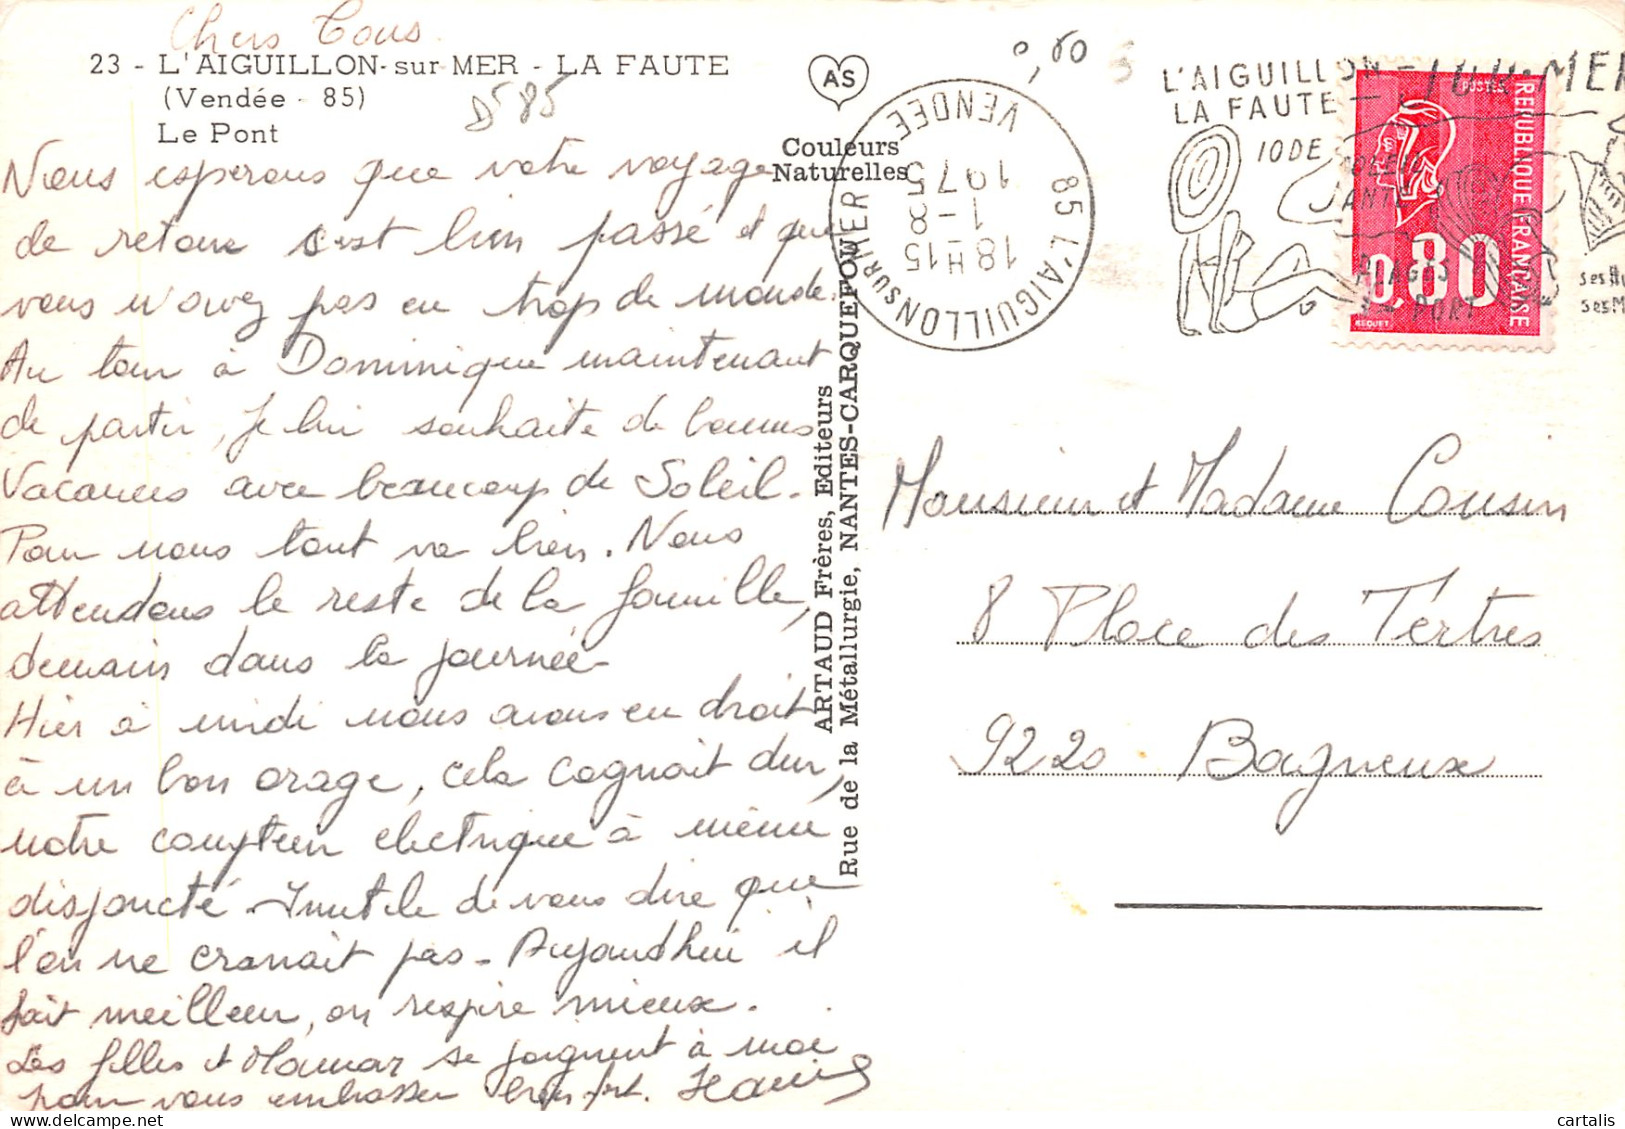 Chers Tous
23 - L'AIGUILLON-sur-MER - LA FAUTE
(Vendée - 85)
Le Pont
D 85
Nous esperons que votre voyage
de retour c'est bien passé et que
vous n'avez pas eu trop de monde.
Au tour à Dominique maintenant
de partir, je lui souhaite de bonnes
Vacances avec beaucoup de Soleil.
Pour nous tout va bien. Nous
attendons le reste de la famille,
demain dans la journée
Hier à midi nous avons eu droit
à un bon orage, cela cognait dur,
notre compteur electrique à même
disjoncté. Inutile de vous dire que
l'on ne cranait pas - Aujourd'hui il
fait meilleur, on respire mieux.
Les filles et Maman se joignent à moi
pour vous embrasser bien fort.
AS
Couleurs
Naturelles
ARTAUD Frères, Editeurs
Rue de la Métallurgie, NANTES-CARQUEFOU
0,80
85 L'AIGUILLON SUR MER
VENDEE
18H15
1-8
1975
L'AIGUILLON-SUR-MER
LA FAUTE
IODE
SOLEIL
SANTE
PLAGES
PORT
POSTES
REPUBLIQUE FRANÇAISE
0,80
BEQUET
Monsieur et Madame Cousin
8 Place des Tertres
92220 Bagneux
cartalis